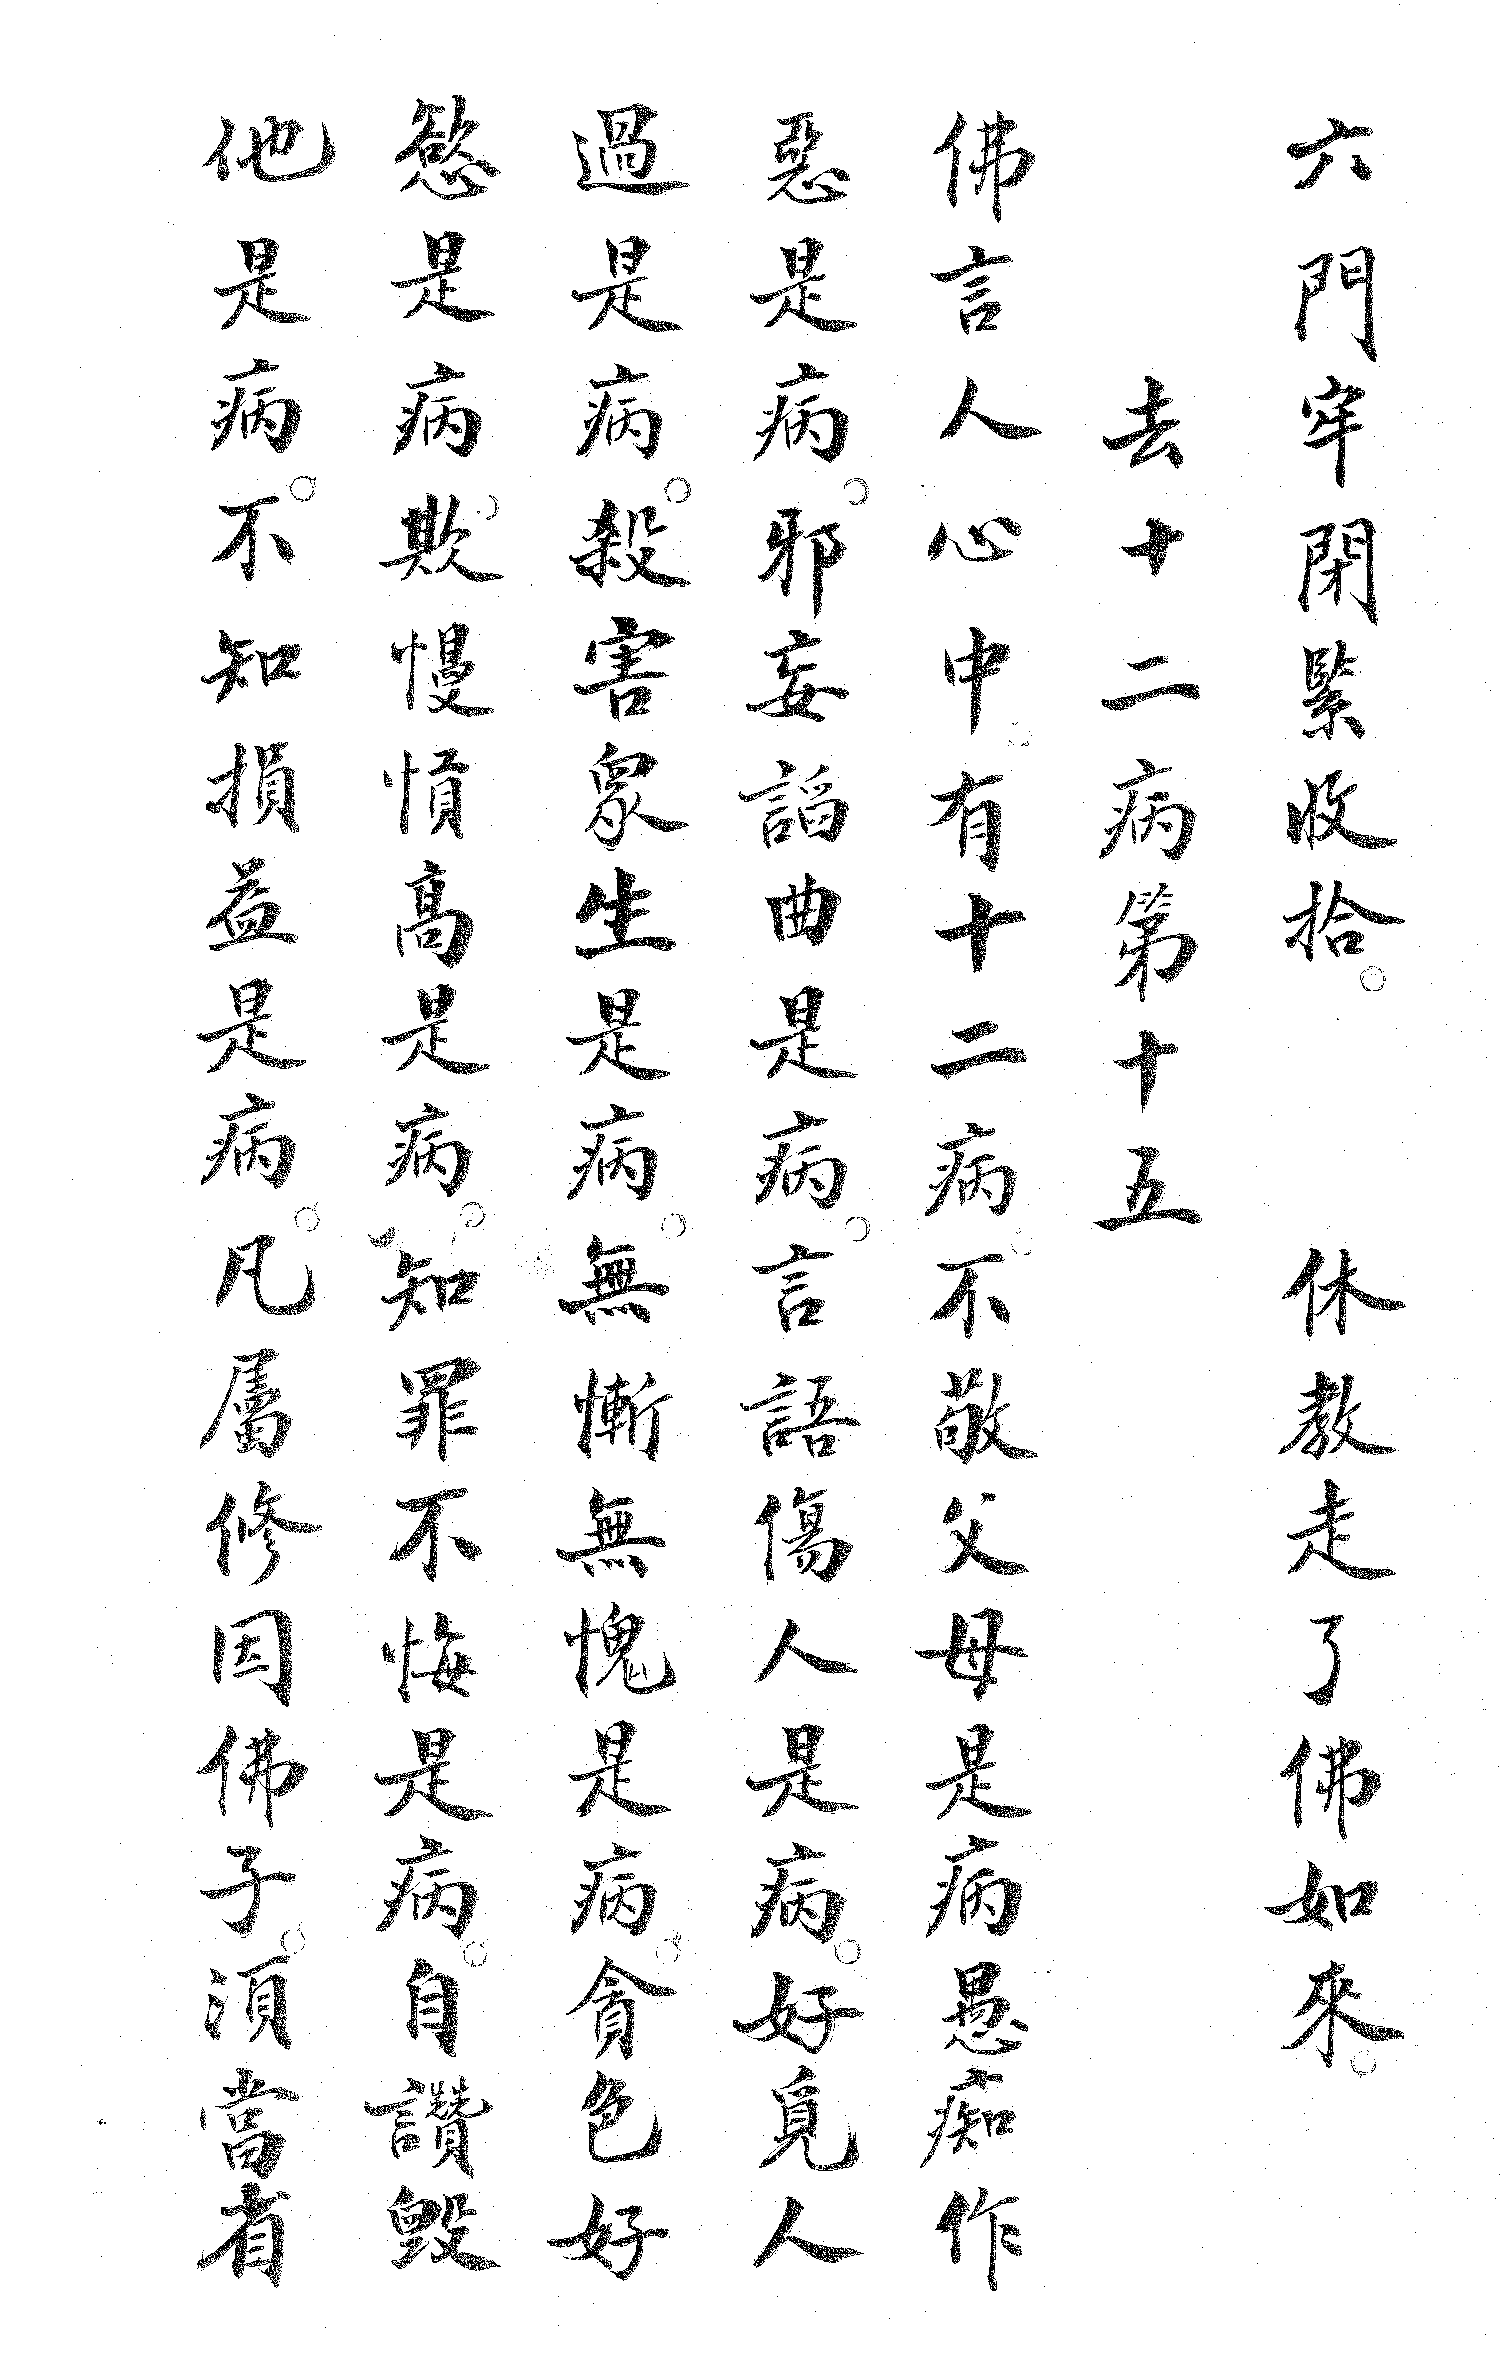 六門牢閉緊收拾。　休教走了佛如來。
去十二病第十五
佛言人心中。有十二病。不敬父母是病愚痴作
惡是病。邪妄謟曲是病。言語傷人是病。好覓人
過是病。殺害眾生是病。無慚無愧是病。貪色好
慾是病。欺慢憤高是病。知罪不悔是病。自讚毀
他是病。不知損益是病。凡屬修因佛子。須當省